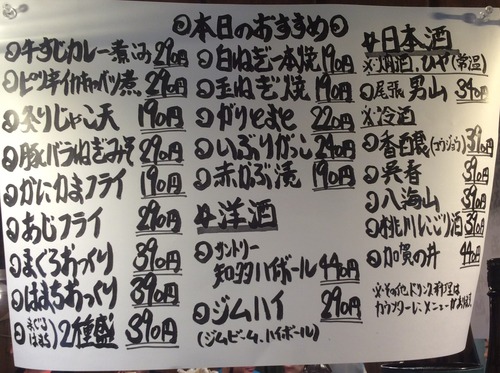 本日のおすすめ
牛すじカレー煮込み 290円
ピリ辛イカキャベツ煮 290円
炙りじゃこ天 190円
豚バラねぎみそ 290円
かにかまフライ 190円
あじフライ 290円
まぐろおつくり 390円
はまちおつくり 390円
まぐろ はまち 2種盛 390円
白ねぎ一本焼 190円
玉ねぎ焼 190円
がりとまと 220円
いぶりがっこ 290円
赤かぶ漬 190円
#洋酒
サントリー
知多ハイボール 440円
ジムハイ 290円
(ジムビーム、ハイボール)
#日本酒
※燗酒、ひや(常温)
尾張男山 340円
※冷酒
香酉蔵(コウジョウ) 390円
呉春 390円
八海山 390円
桃川にごり酒 390円
加賀の井 440円
※その他ドリンク、料理は
カウンター上、メニューが